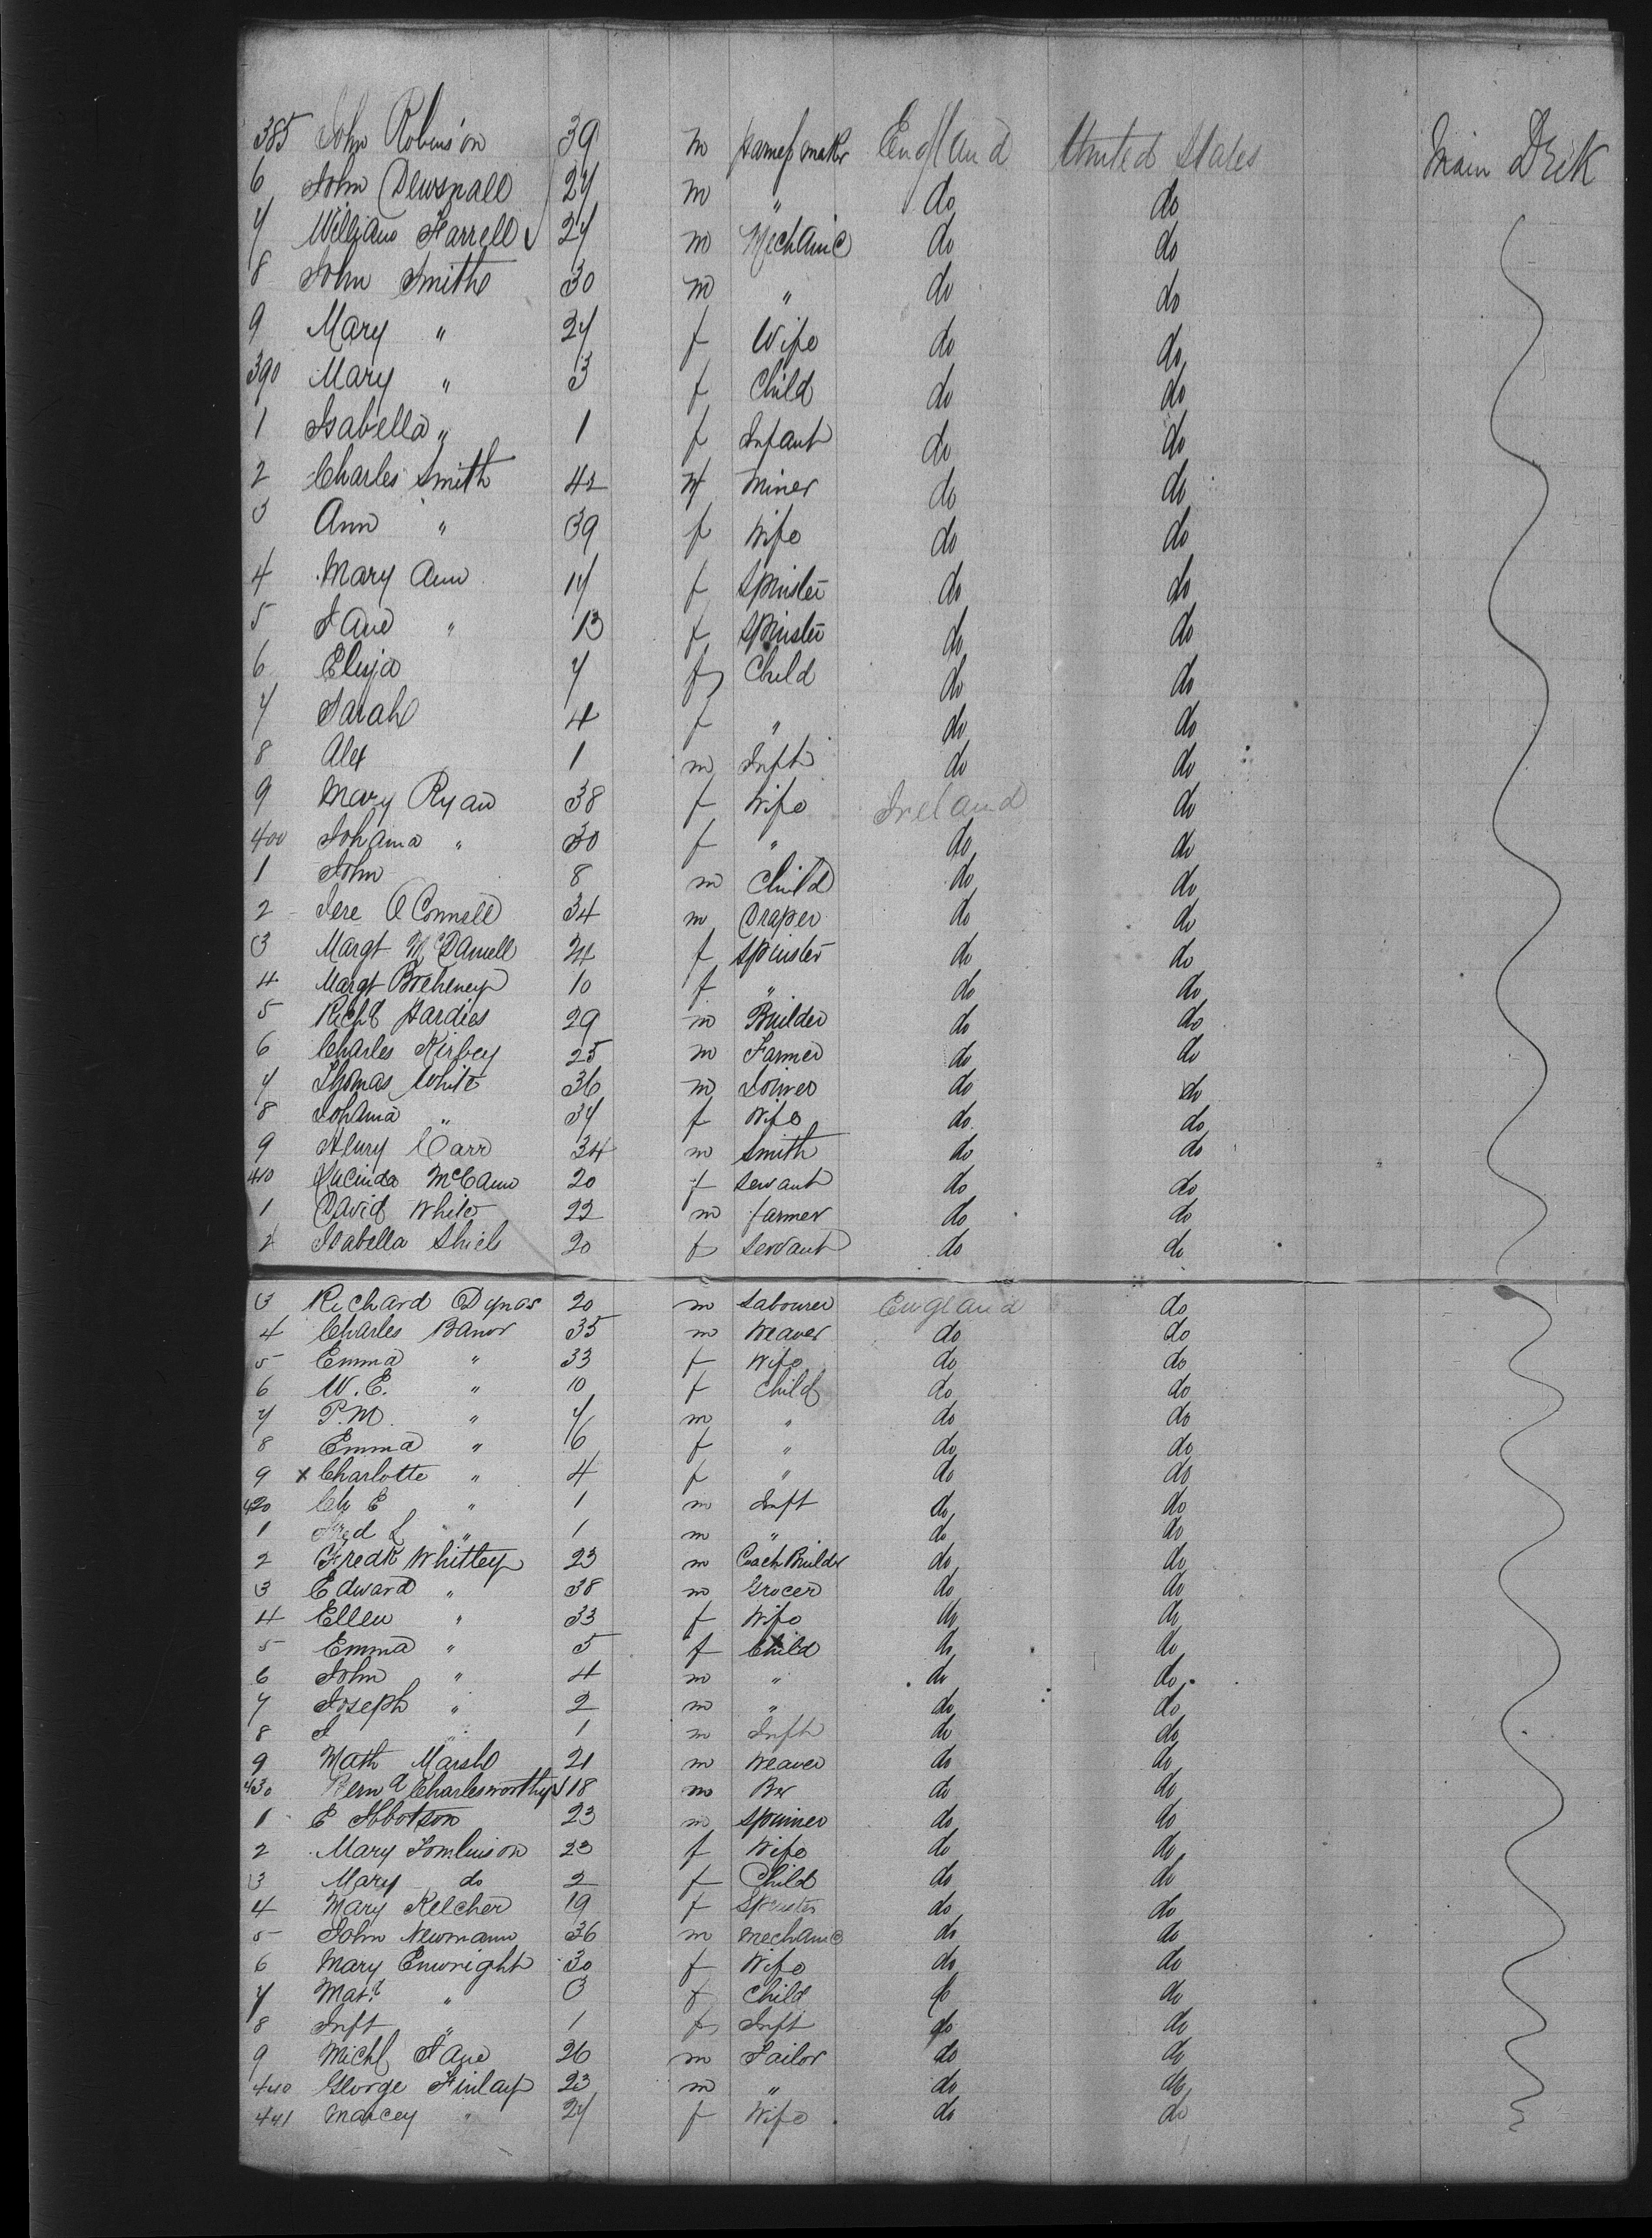 385 John Robinson 39 m Harness maker England United States Main Deck
6 John Dewsnall 27 m " do do
7 William Farrell 27 m Mechanic do do
8 John Smith 30 m " do do
9 Mary " 27 f Wife do do
390 Mary " 3 f Child do do
1 Isabella " 1 f Infant do do
2 Charles Smith 42 M Miner do do
3 Ann " 39 f Wife do do
4 Mary Ann 17 f Spinster do do
5 Jane " 13 f Spinster do do
6 Eliza 7 f Child do do
7 Sarah 4 f " do do
8 Alex 1 m Inft do do
9 Mary Ryan 38 f Wife Ireland do
400 Johana " 30 f " do do
1 John 8 m Child do do
2 Jere O Connell 34 m Draper do do
3 Margt McDannell 24 f Spinster do do
4 Margt Breheney 10 f " do do
5 Richd Hardies 29 m Builder do do
6 Charles Kirbey 25 m Farmer do do
7 Thomas White 36 m Joiner do do
8 Johana " 37 f Wife do do
9 Henry Carr 34 m Smith do do
410 Lucinda McCann 20 f Servant do do
1 David White 22 m farmer do do
2 Isabella Shiels 20 f Servant do do
3 Richard Dynos 20 m Labourer England do
4 Charles Banor 35 m Weaver do do
5 Emma " 33 f Wife do do
6 W. E. " 10 f Child do do
7 P. M. " 7 m " do do
8 Emma " 6 f " do do
9 x Charlotte " 4 f " do do
420 Ch E " 1 m Inft do do
1 Fred L " 1 m " do do
2 Fredk Whitley 23 m Coach Builder do do
3 Edward " 38 m Grocer do do
4 Ellen " 33 f Wife do do
5 Emma " 5 f Child do do
6 John " 4 m " do do
7 Joseph " 2 m " do do
8 J " 1 m Inft do do
9 Math Marsh 21 m Weaver do do
430 Charlesworth 18 m do do
1 E Ibbotson 23 m Spinner do do
2 Mary Tomlinson 23 f Wife do do
3 Mary do 2 f Child do do
4 Mary Kelcher 19 f Spinster do do
5 John Newmann 36 m mechanic do do
6 Mary Enwright 30 f Wife do do
7 Mat " 3 f Child do do
8 Inft " 1 f Inft do do
9 Michl Jane 26 m Tailor do do
440 George Finlay 23 m " do do
441 Marcey " 27 f Wife do do